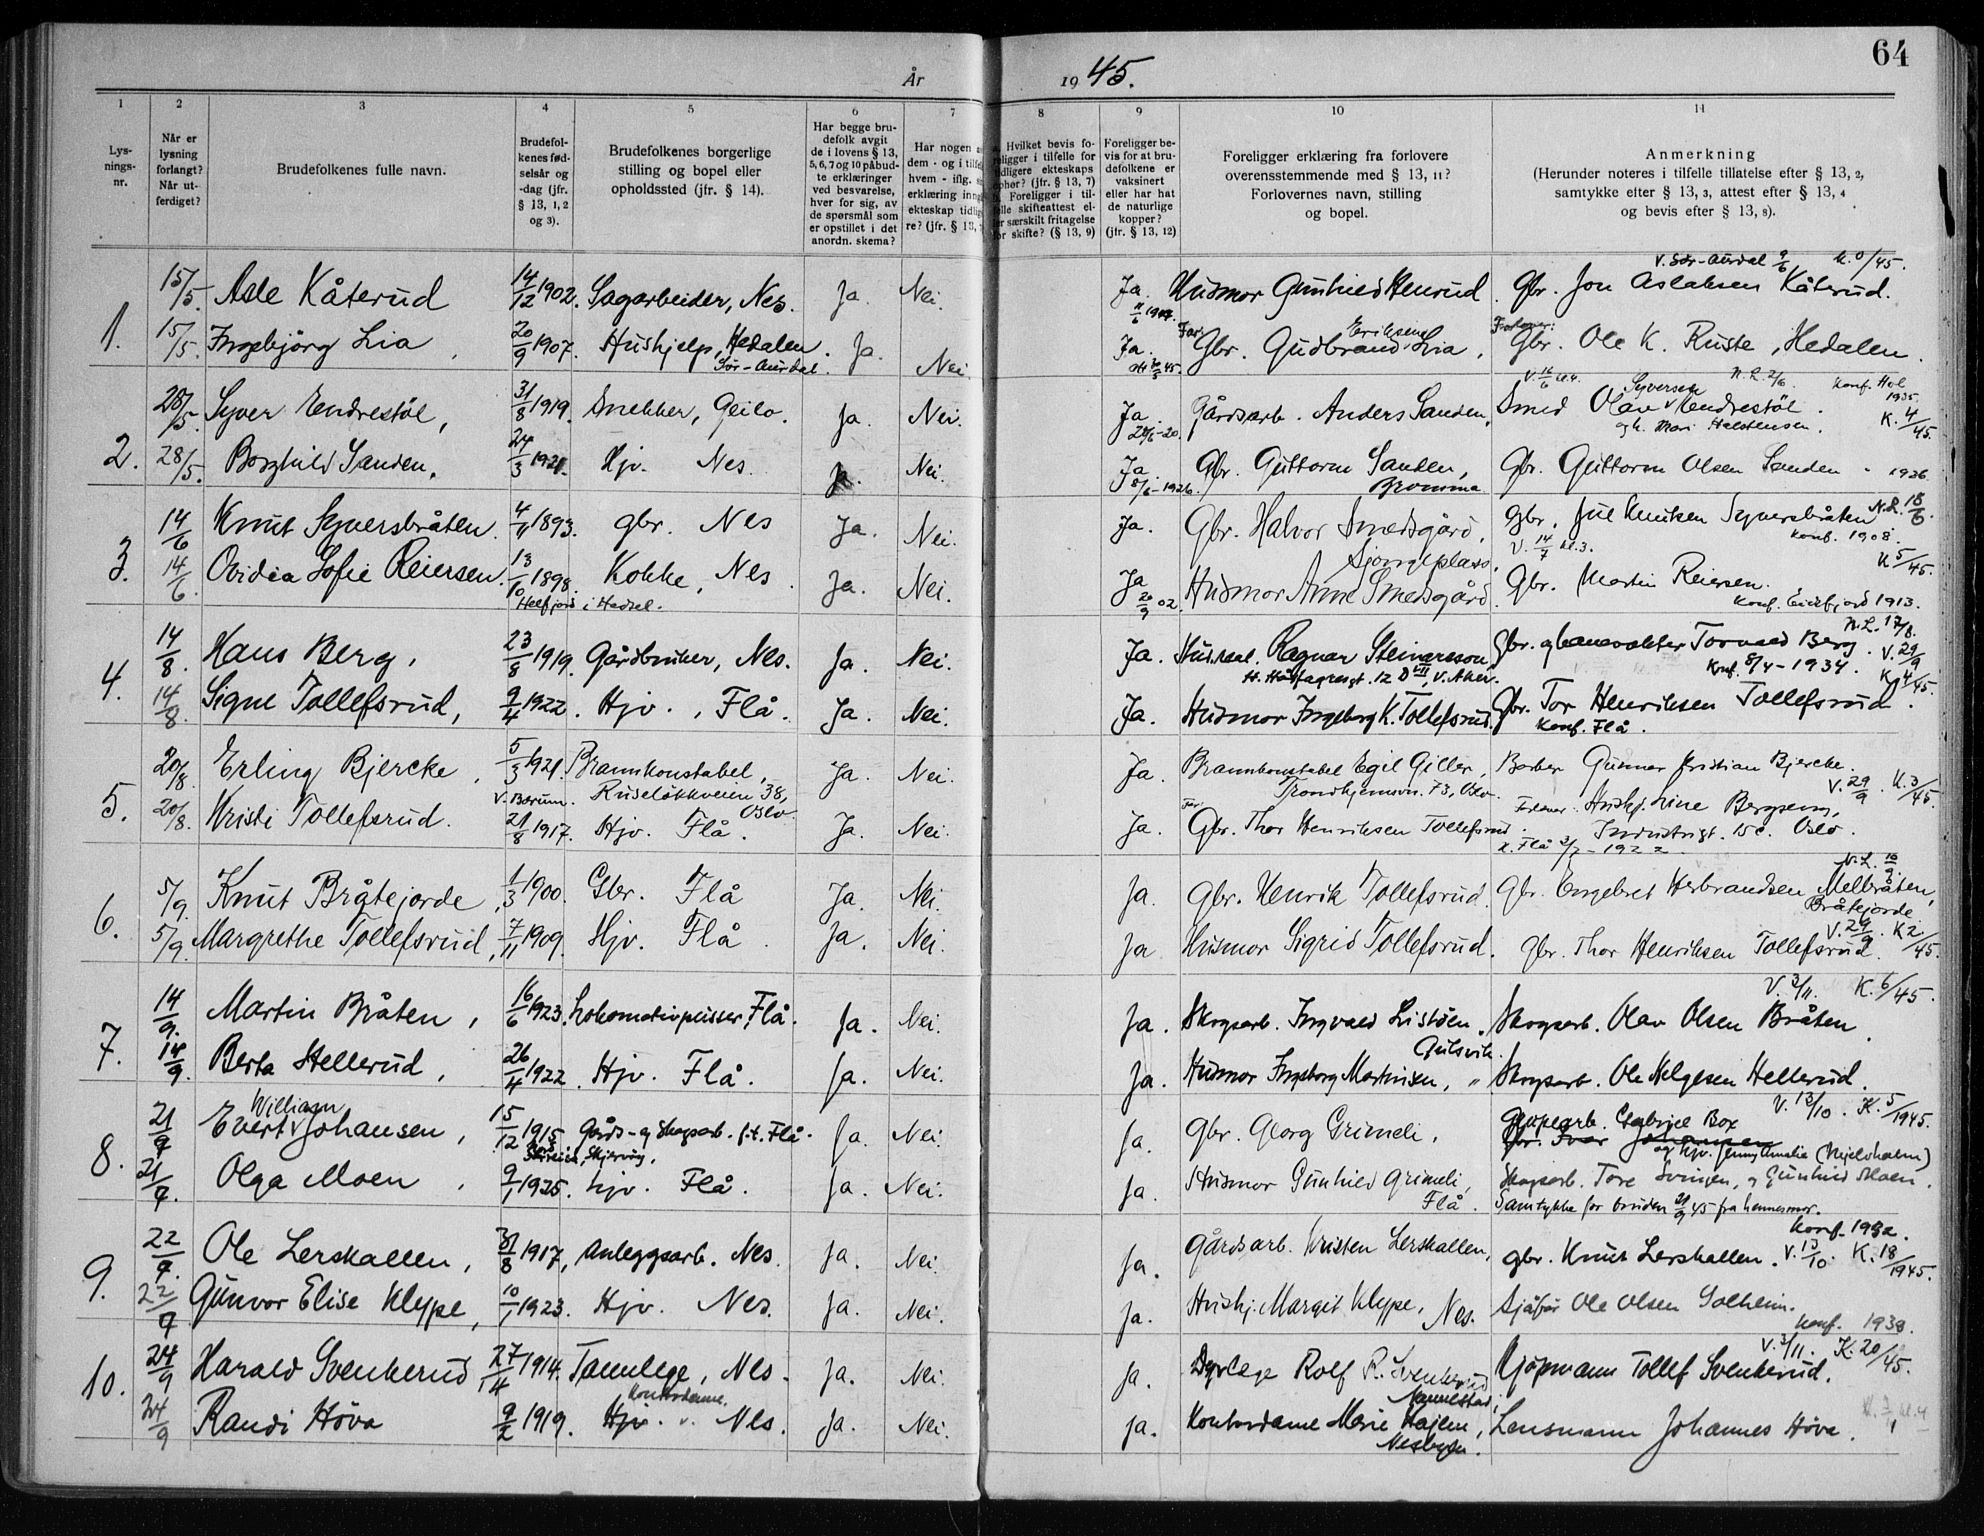 År 1945.
64
1 2 3 4 5 6 7 8 9 10 11
Lys-
nings-
nr.
Når er
lysning
forlangt?
Når ut-
ferdiget?
Brudefolkenes fulle navn.
Brudefol-
kenes fød-
selsår og
-dag (jfr.
§ 13, 1, 2
og 3).
Brudefolkenes borgerlige
stilling og bopel eller
opholdssted (jfr. § 14).
Har begge bru-
defolk avgit
de i lovens § 13,
5, 6, 7 og 10 påbud-
te erklæringer
ved besvarelse,
hver for sig, av
de spørsmål som
er opstillet i det
anordn. skema?
Har nogen
dem - og i
hvem - iflg.
erklæring
ekteskap
re? (jfr. § 13,
Hvilket bevis fo-
religger i tilfelle for
tidligere ekteskaps
ophør? (jfr. § 13, 7)
Foreligger i til-
felle skifteattest el-
ler særskilt fritagelse
for skifte? (§ 13, 9)
Foreligger be-
vis for at bru-
defolkene er
vaksinert
eller har hat
de naturlige
kopper?
(jfr. § 13, 12)
Foreligger erklæring fra forlovere
overensstemmende med § 13, 11?
Forlovernes navn, stilling
og bopel.
Anmerkning
(Herunder noteres i tilfelle tillatelse efter § 13, 2,
samtykke efter § 13, 3, attest efter § 13, 4
og bevis efter § 13, 8).
V. Sør-Aurdal 9/6 K. 0/45.
1. 15/5. Asle Kåterud 14/12 1902. Sagarbeider, Nes. Ja. Nei. Ja. Husmor Gunhild Henrud. Gbr. Jon Aslaksen Kåterud.
15/5. Ingebjörg Lia, 20/9 1907. Hushjelp, Hedalen. Ja. Nei. Ja. Far: Gbr. Gudbrand Eriksen Lia, Forlover: Gbr. Ole K. Ruste, Hedalen.
Sør-Aurdal.
N.L. 2/6. Konf. Hol 1935.
2. 28/5. Syver Endrestöl, 31/8 1919. Snekker, Geilo. Ja. Nei. Ja. Gårdsarb. Anders Sanden, Smed Olav Syversen Endrestöl. K. 4/45.
28/5. Borghild Sanden. 24/3 1921. Hjv. Nes. Ja. Nei. Ja. Gbr. Guttorm Sanden, Gbr. Guttorm Olsen Sanden 1936
Bromma
3. 14/6 Knut Syversbråten. 4/11 1893. gbr. Nes Ja. Nei. Ja. Gbr. Halvor Smedsgård, Gbr. Jul Knutsen Syversbråten N.L. 18/6.
Konf. 1908.
V. 14/7 kl. 3. K 5/45.
14/6 Ovidia Sofie Reiersen. 13/10 1898. Kokke, Nes. Ja. Nei. Ja 20/9 02. Husmor Anne Smedsgård. Gbr. Martin Reiersen.
i Hadsel. Konf. Eidsfjord 1913.
N.L. 17/8.
4. 14/8. Hans Berg, 23/8 1919. Gårdbruker, Nes. Ja. Nei. Ja. Ragnar Steinarsson, Gbr. og banevokter Torvald Berg. V. 29/9
V. Aker. Konf. 8/4-1934. K 4/45.
14/8. Signe Tollefsrud, 9/4 1922. Hjv., Flå. Ja. Nei. Ja. Husmor Ingeborg K. Tollefsrud. Gbr. Tor Henriksen Tollefsrud.
Konf. Flå.
5. 20/8. Erling Bjercke, 5/3 1921. Brannkonstabel, Ja. Nei. Ja. Brannkonstabel Egil Giller, Barber Gunnar Kristian Bjercke.
V. Bærum. Ruseløkkveien 38, Oslo Trondhjemsvn. 73, Oslo. V. 29/9. K. 3/45.
20/8. Kristi Tollefsrud. 21/8 1917. Hjv. Flå. Ja. Nei. Ja. Far: Gbr. Thor Henriksen Tollefsrud. Forlover: Hushj. Stine Bergseng,
Industrigt. 15 c. Oslo.
V.L. 10/9.
6. 5/9. Knut Bråtejorde, 1/3 1900. Gbr. Flå Ja. Nei. Ja. Gbr. Henrik Tollefsrud. Gbr. Engebret Herbrandsen Mellbråten,
Bråtejorde.
V. 29/9. K 2/45.
5/9. Margrethe Tollefsrud, 7/11 1909. Hjv. Flå. Ja. Nei. Ja Husmor Sigrid Tollefsrud. Gbr. Thor Henriksen Tollefsrud.
V. 3/11. K. 6/45.
7. 14/9. Martin Bråten, 16/6 1923. Lokomotivpusser, Flå. Ja. Nei. Ja. Skogsarb. Ingvald Listöen, Gulsvik. Skogsarb. Olav Olsen Bråten.
14/9. Berta Hellerud, 26/4 1922. Hjv. Flå. Ja. Nei. Ja. Husmor Ingeborg Martinsen, " Skogsarb. Ole Helgesen Hellerud.
V. 13/10. K. 5/1945.
8. 21/9 Evert William Johansen, 15/12 1915, Gårds- og skogsarb. f.t. Flå. Ja. Nei. Ja. Gbr. Georg Grimeli, Gabriel Box
Skjervöy.
21/9. Olga Moen, 9/1 1925. hjv. Flå. Ja. Nei. Ja. Husmor Gunhild Grimeli, Flå. Skogsarb. Tore Svingen, og Gunhild Moen.
Samtykke for bruden 21/9 45 fra hennes mor.
Konf. 1932.
9. 22/9. Ole Lerskallen, 31/8 1917, Anleggsarb. Nes. Ja. Nei. Ja. Gårdsarb. Kristen Lerskallen, gbr. Knut Lerskallen. V. 13/10. K. 18/1945.
22/9 Gunvor Elise Klype, 10/1 1923. Hjv. Nes. Ja. Nei. Ja. Hushj. Margit Klype, Nes. Sjåfør Ole Olsen Solheim.
Konf. 1938.
V. 3/11. K. 20/45.
10. 24/9 Harald Svenkerud, 27/4 1914. Tannlege, Nes. Ja. Nei. Ja. Dyrlege Rolf R. Svenkerud, Kjöpmann Tollef Svenkerud.
24/9 Randi Höva 9/2 1919. Hjv. Kontordame. Nes. Ja. Nei. Ja. Kontordame Marie Hajem, Nesbyen. Lensmann Johannes Höva.